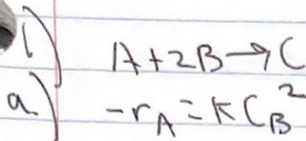 1) A+2B→C
a) -r_A = kC_B^2